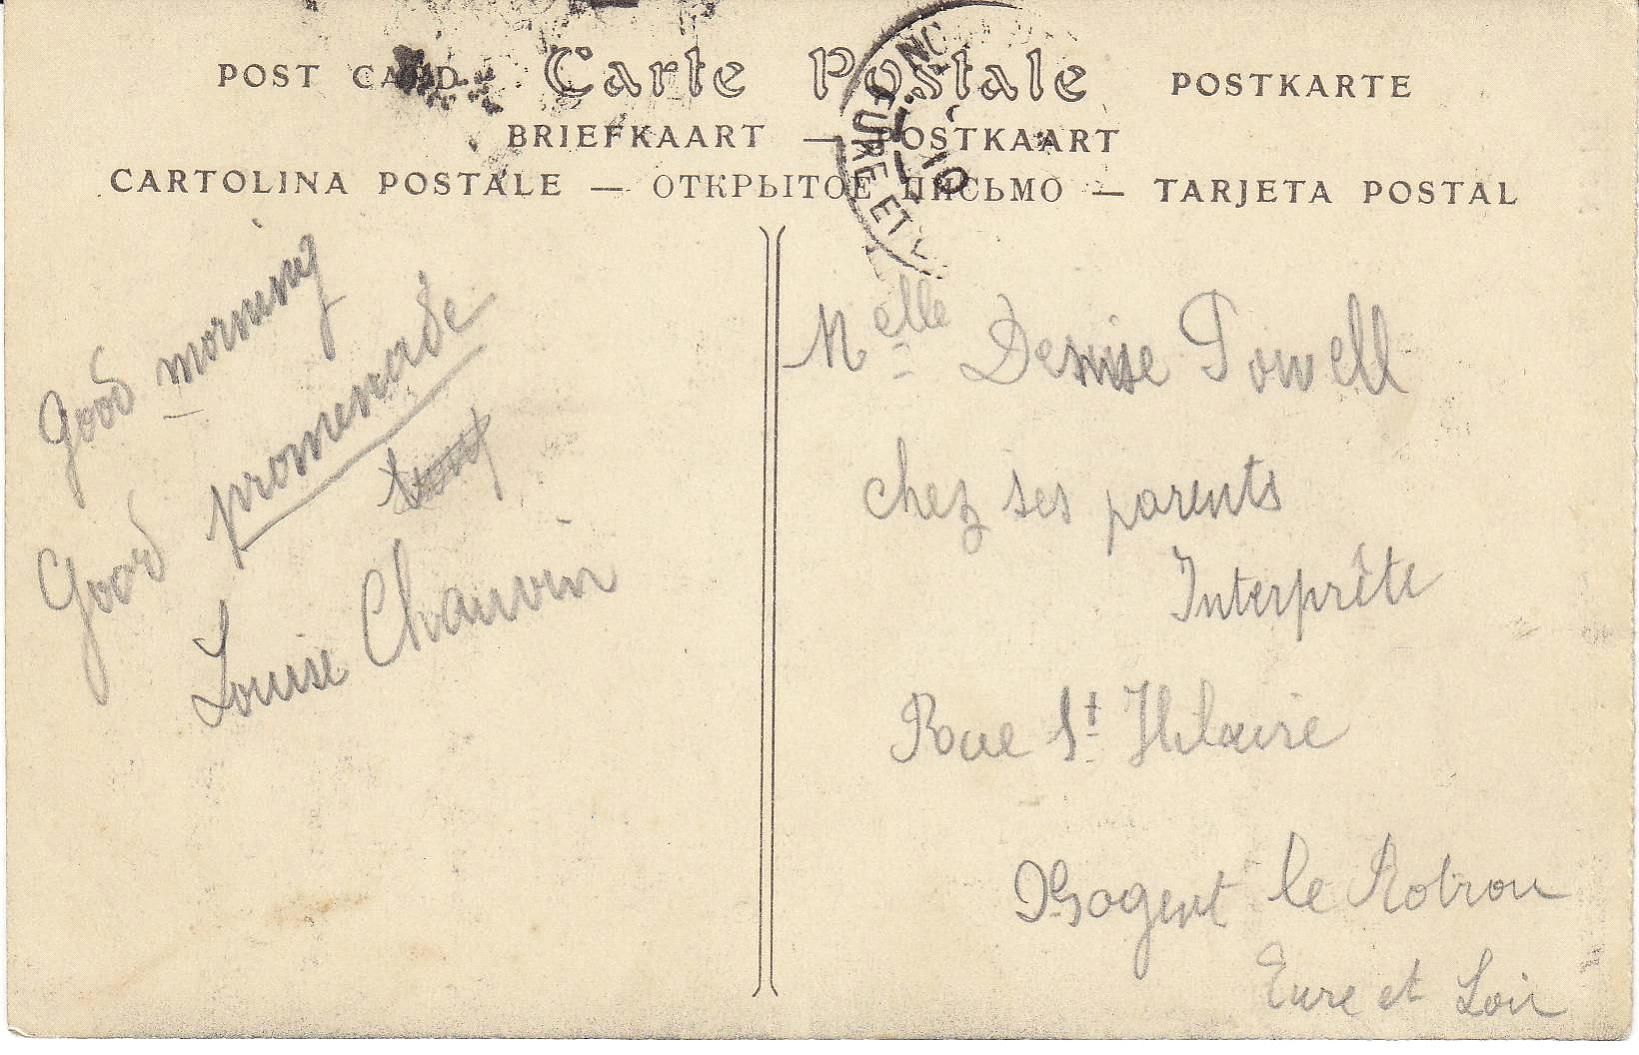 POST CARD Carte Postale POSTKARTE
BRIEFKAART — POSTKAART
CARTOLINA POSTALE — ОТКРЫТОЕ ПИСЬМО — TARJETA POSTAL
EURE ET
10
Good morning
Good promenade
Louise Chauvin
Melle Denise Powell
chez ses parents
Interprête
Rue St Hilaire
Nogent le Rotrou
Eure et Loir